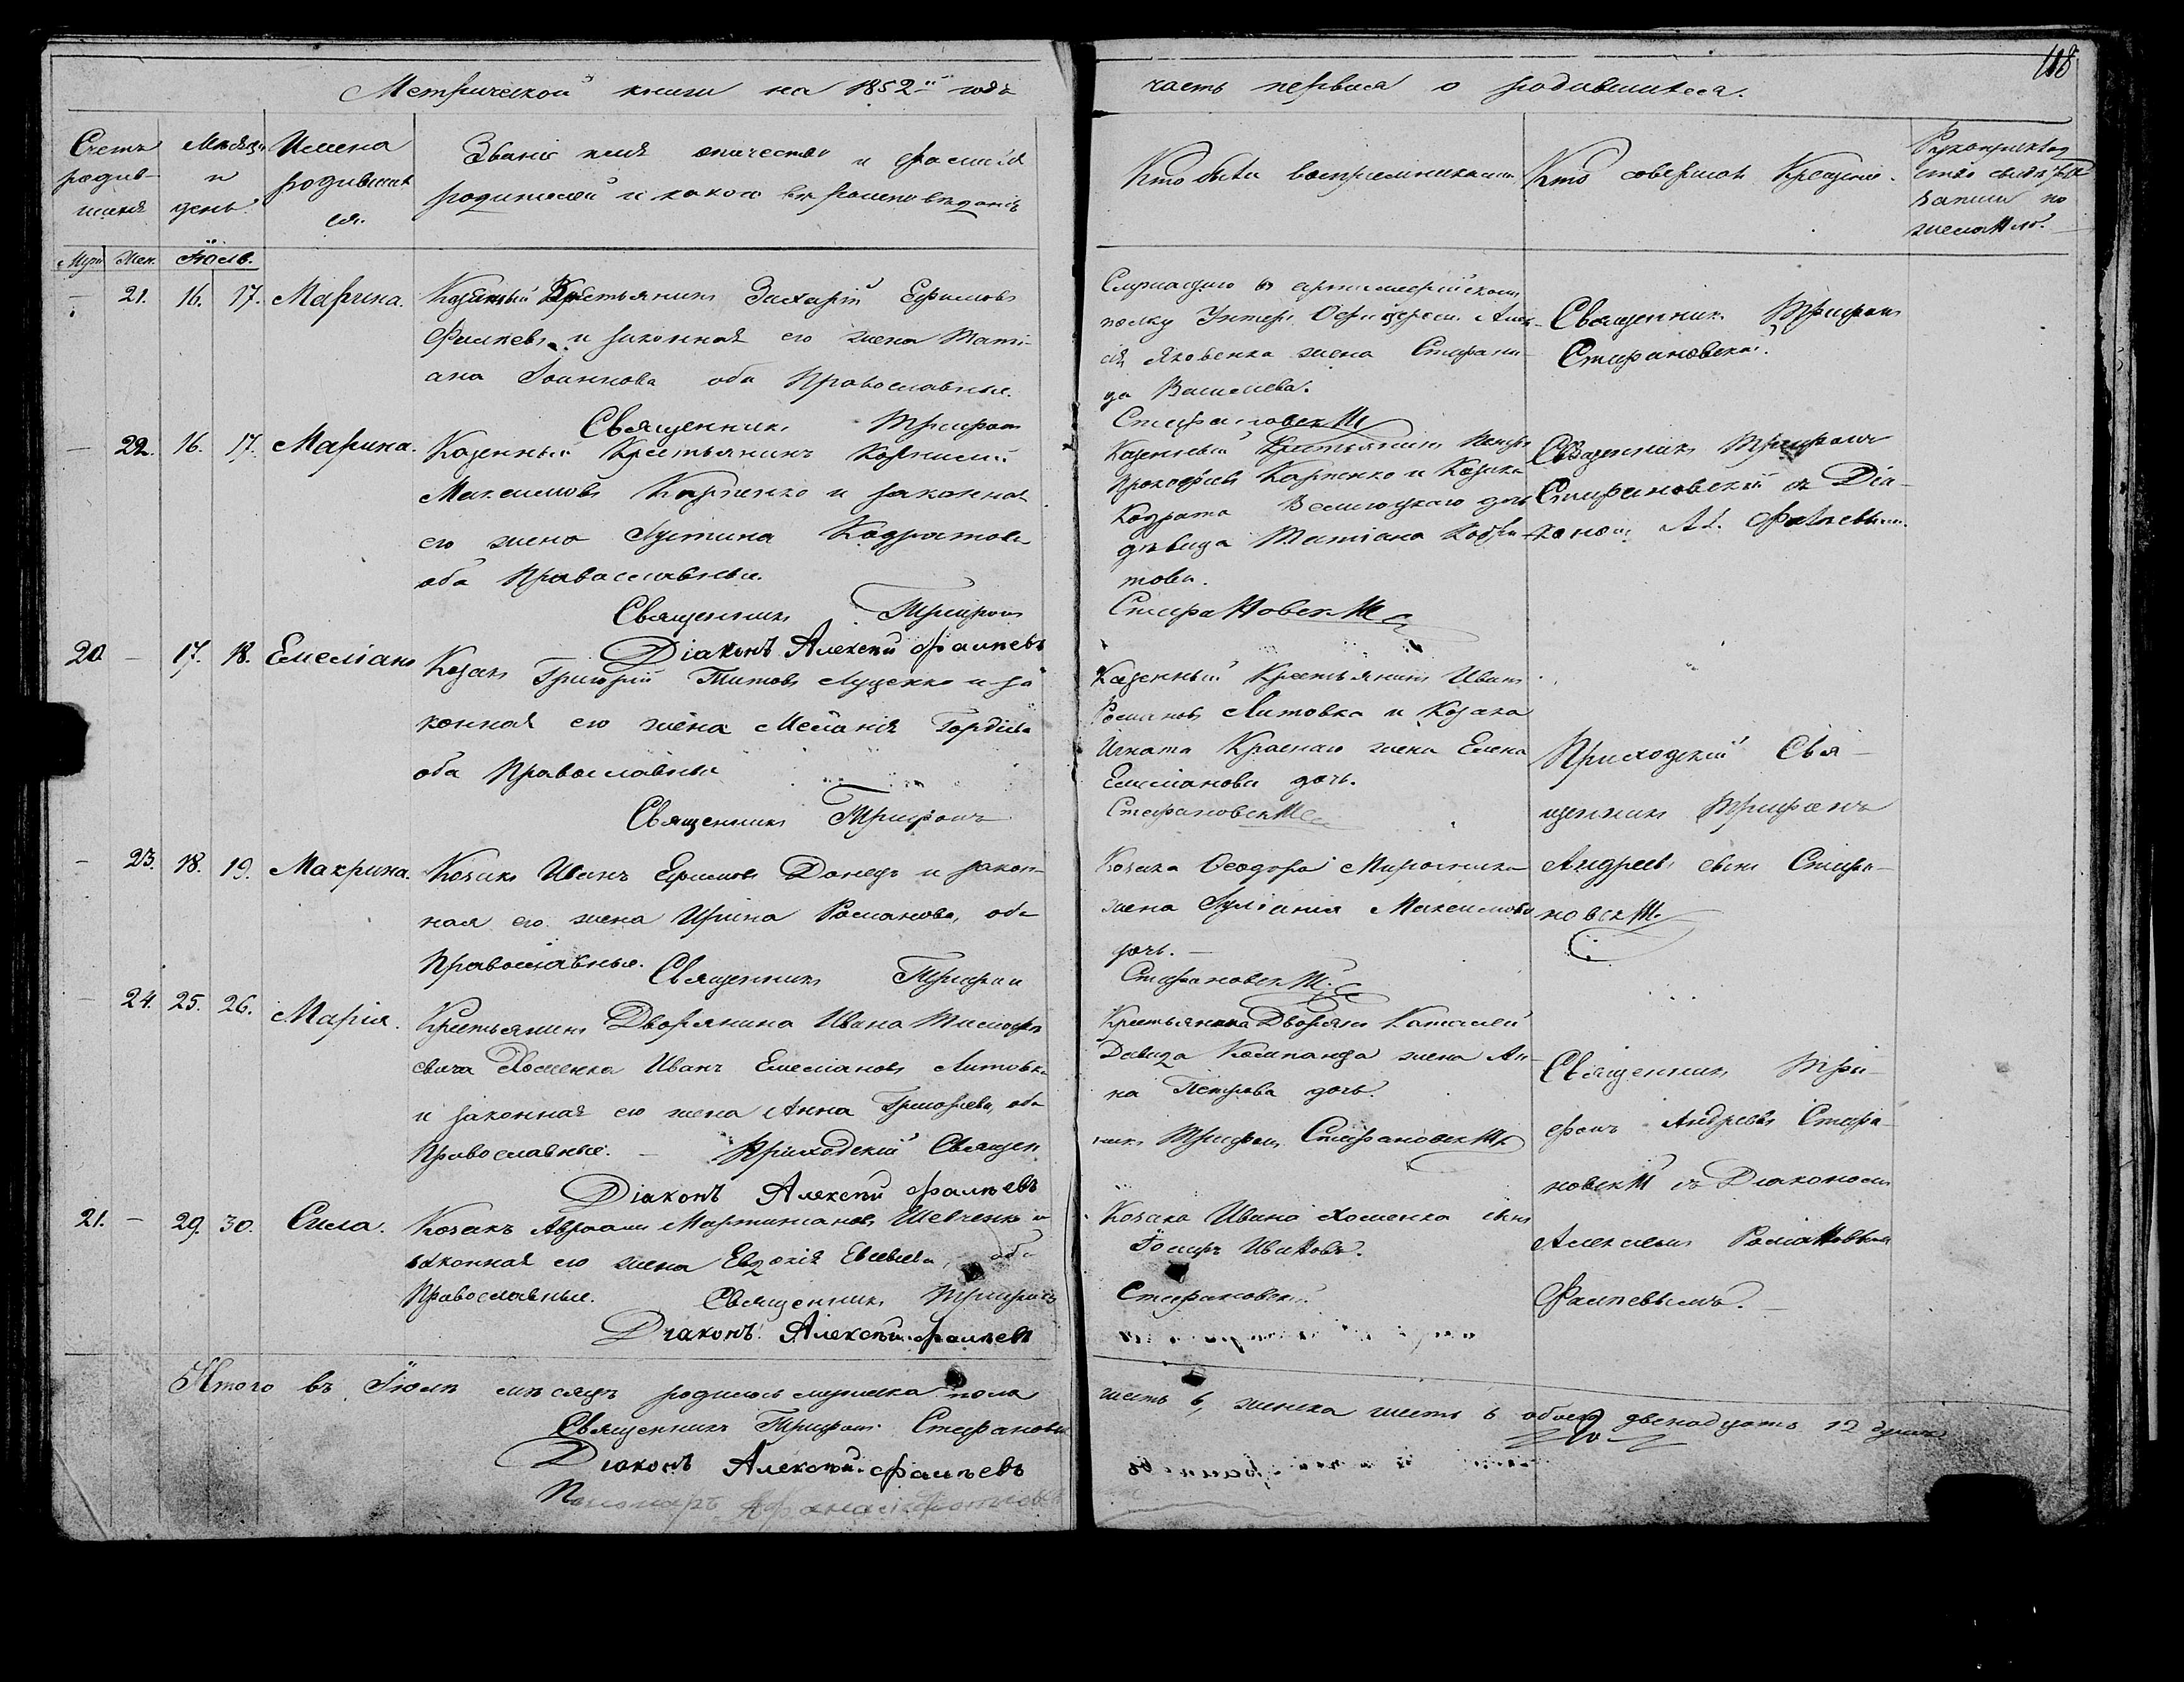 118
Метрической книги на 1852й годъ
часть первая о родившихся.
Счетъ родив-
шихся
Мѣсяцъ
и
день.
Имена
родивших
ся.
Званіе имя отчество и фамилія
родителей и какого вѣроисповѣданія
Кто были воспріемниками
Кто совершалъ Крещеніе.
записи по
желанію.
Муж. Жен. Іюль.
— 21. 16. 17. Марина. Казенный Крестьянинъ Захарій Ефимовъ
и законная его жена Тати-
ана Іоаннова оба Православные.
Священникъ Трифонъ
Служащаго въ артиллерійскомъ
полку Унтеръ Офицеромъ Алек-
сія Яковенка жена Стефани-
да Васильева.
Стефановскій
Священникъ Трифонъ
Стефановскій.
— 22. 16. 17. Марина. Казенный Крестьянинъ Корнилій
Максимовъ Карпенко и законная
его жена Іустина Кодратова
оба Православные.
Священникъ Трифонъ
Діаконъ Алексѣй Фалпевъ
Казенный Крестьянинъ Петръ
Прокофьевъ Карпенко и Козака
Кодрата дочь
дѣвица Татіана Кодра-
това.
Стефановскій
Священникъ Трифонъ
Стефановскій съ Діа-
кономъ Ал. Фалпевымъ.
20 — 17. 18. Емеліанъ Козакъ Григорій Титовъ Луценко и за
конная его жена Меланія Гордіева
оба Православные
Священникъ Трифонъ
Казенный Крестьянинъ Иванъ
Романовъ Литовка и Козака
Игната Краснаго жена Елена
Емеліанова дочь.
Стефановскій
Приходскій Свя-
щенникъ Трифонъ
Андреевъ сынъ Стефа-
новскій.
— 23. 18. 19. Макрина. Козакъ Иванъ Ефимовъ Донецъ и закон-
ная его жена Ирина Романова, оба
Православные. Священникъ Трифон
Козака Ѳеодора Мирошника
жена Іуліанія Максимова
дочь. —
Стефановскій.
— 24. 25. 26. Марія. Крестьянинъ Дворянина Ивана Тимофе
евича Хоменка Иванъ Емеліановъ Литовка
и законная его жена Анна Григорьева, оба
Православные. — Приходскій Священ
Діаконъ Алексѣй Фалпевъ
Крестьянина Дворяни
Давида Компанца жена Ан-
на Петрова дочь.
никъ Трифонъ Стефановскій
Священникъ Три-
фонъ Андреевъ Стефа-
новскій съ Діакономъ
Алексѣемъ Романовымъ
Фалпевымъ. —
21. — 29. 30. Сила. Козакъ Авраамъ Мартиніановъ Шевченко и
законная его жена Евдокія оба
Православные. Священникъ Трифонъ
Діаконъ Алексѣй Фалпевъ
Козака Ивана Хоменка сынъ
Іосифъ Ивановъ.
Стефановскій
Итого въ Іюлѣ мѣсяцѣ родилось мужеска пола
шесть 6, женска шесть 6 обоего двенадцать 12 душъ
Священникъ Трифонъ Стефановск
Діаконъ Алексѣй Фалпевъ
Пономарь